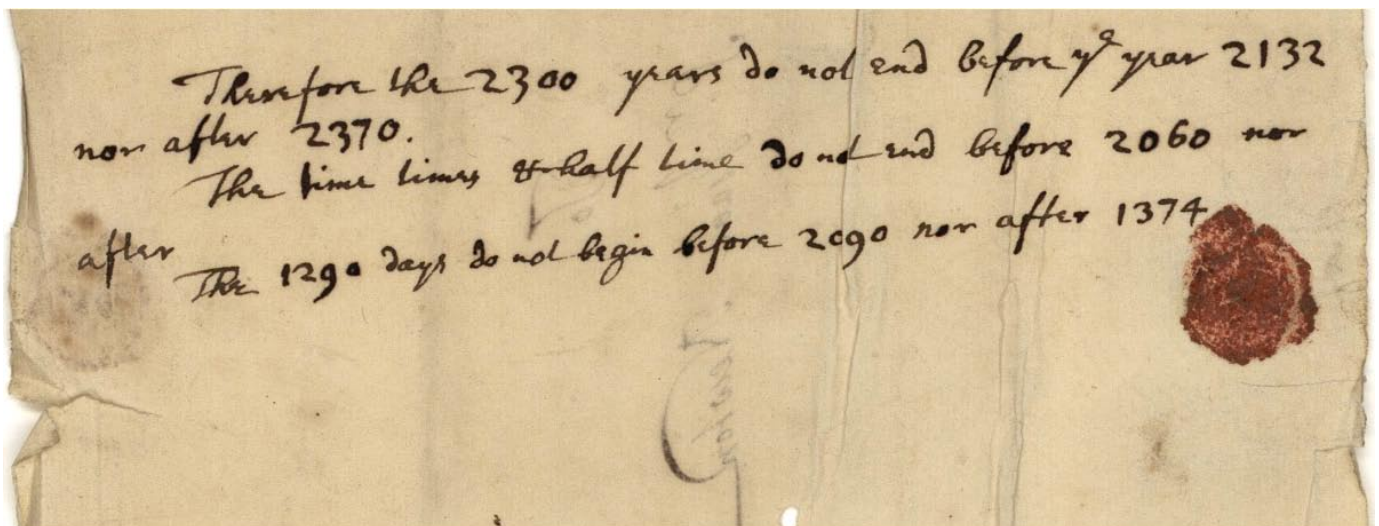 Therefore the 2300 years do not end before ye year 2132
nor after 2370.
The time times & half time do not end before 2060 nor
after
The 1290 days do not begin before 2090 nor after 1374